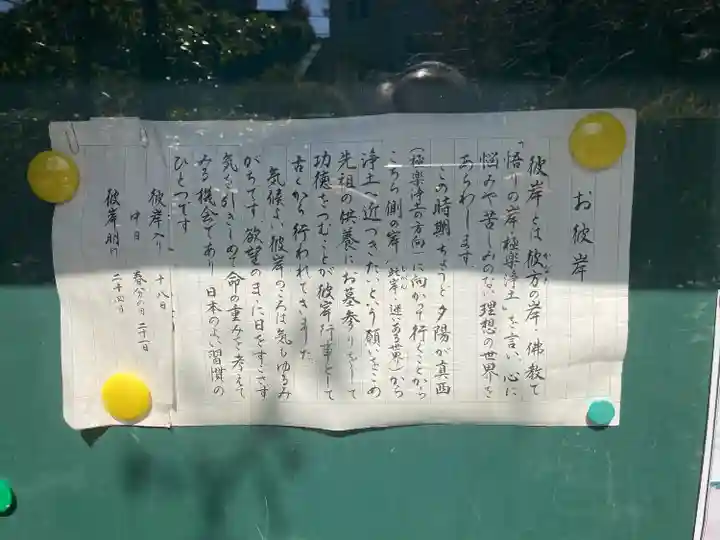 お彼岸
彼岸とは彼方の岸・佛教で
「悟りの岸極楽浄土」を言い、心に
悩みや苦しみのない理想の世界を
あらわします。
この時期ちょうど夕陽が真西
(極楽浄土の方向)に向かって行くことから
こちら側の岸(此岸・迷いある世界)から
浄土へ近づきたいという願いをこめ
先祖の供養にお墓参りをして
功徳をつむことが彼岸行事として
古くから行われてきました
気候よい彼岸のころは気もゆるみ
がちです。欲望のままに日をすごさず
気を引きしめて命の重みを考えて
みる機会であり日本のよい習慣の
ひとつです
彼岸入り 十八日
中日 春分の日 二十一日
彼岸明け 二十四日